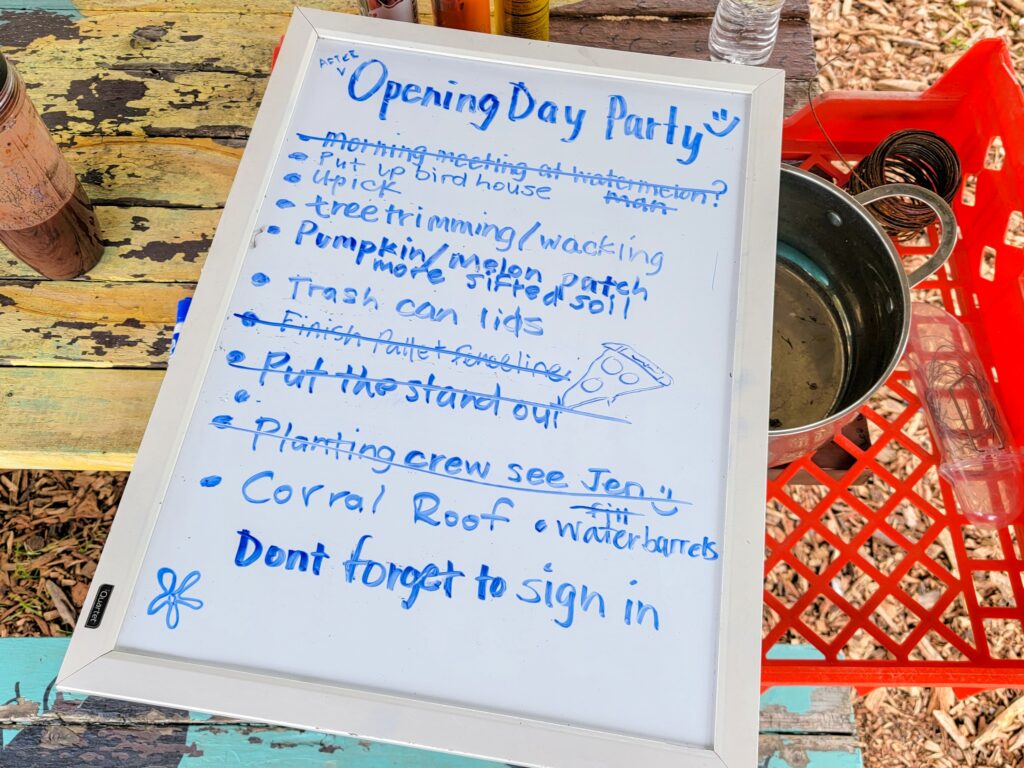 AFTER
Opening Day Party
• Morning meeting at watermelon?
man
• Put up bird house
• Upick
• tree trimming/wackling
• Pumpkin/melon patch
more sifted soil
• Trash can lids
• Finish Pallet fenceline
• Put the stand out
•
• Planting crew see Jen
• Corral Roof
fill
• Waterbarrels
Dont forget to sign in
Quartet